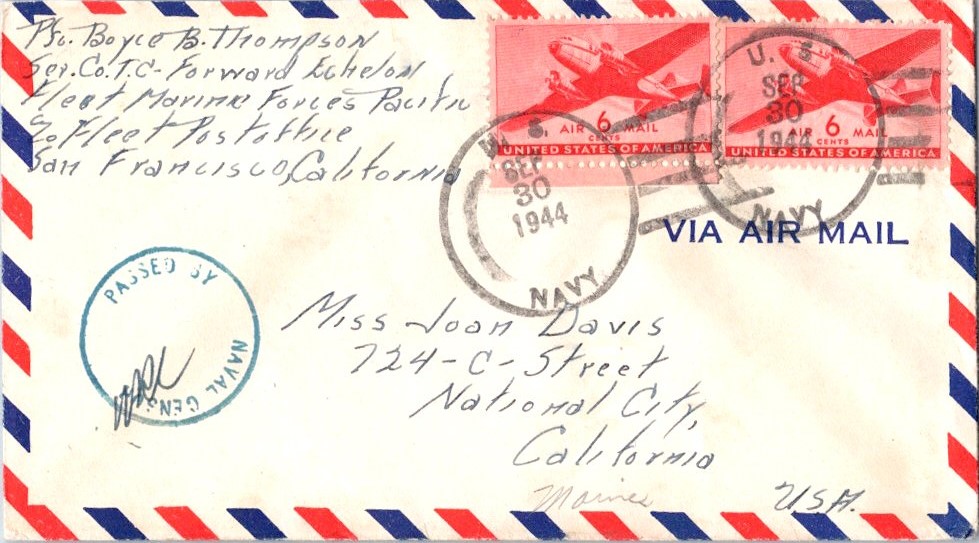 Pfc. Boyce B. Thompson
Ser. Co. T.C- Forward Echelon
Fleet Marine Forces Pacific
℅ Fleet Postoffice
San Francisco, California
AIR 6 MAIL
CENTS
UNITED STATES OF AMERICA
AIR 6 MAIL
CENTS
UNITED STATES OF AMERICA
U. S.
SEP
30
1944
NAVY
U. S.
SEP
30
1944
NAVY
VIA AIR MAIL
PASSED BY
NAVAL CENS
Miss Joan Davis
724-C-Street
National City,
California
Maines
U.S.A.